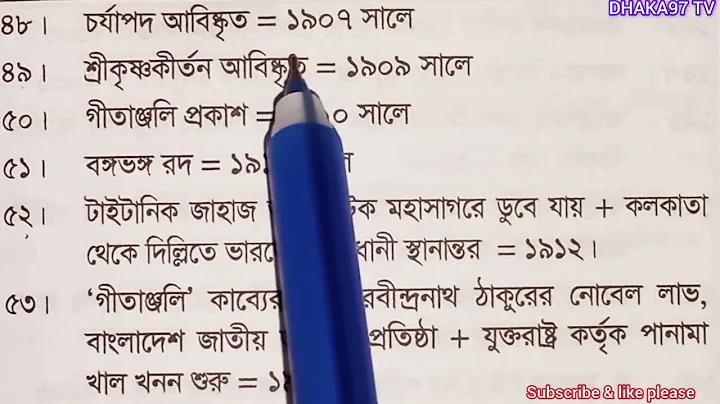 DHAKA97 TV
৪৮। চর্যাপদ আবিষ্কৃত = ১৯০৭ সালে
৪৯। শ্রীকৃষ্ণকীর্তন আবিষ্কৃত = ১৯০৯ সালে
৫০। গীতাঞ্জলি প্রকাশ = ০ সালে
৫১। বঙ্গভঙ্গ রদ = ১৯
৫২। টাইটানিক জাহাজ মহাসাগরে ডুবে যায় + কলকাতা
থেকে দিল্লিতে স্থানান্তর = ১৯১২।
৫৩। ‘গীতাঞ্জলি’ কাব্যের রবীন্দ্রনাথ ঠাকুরের নোবেল লাভ,
বাংলাদেশ জাতীয় প্রতিষ্ঠা + যুক্তরাষ্ট্র কর্তৃক পানামা
খাল খনন শুরু =
Subscribe & like please